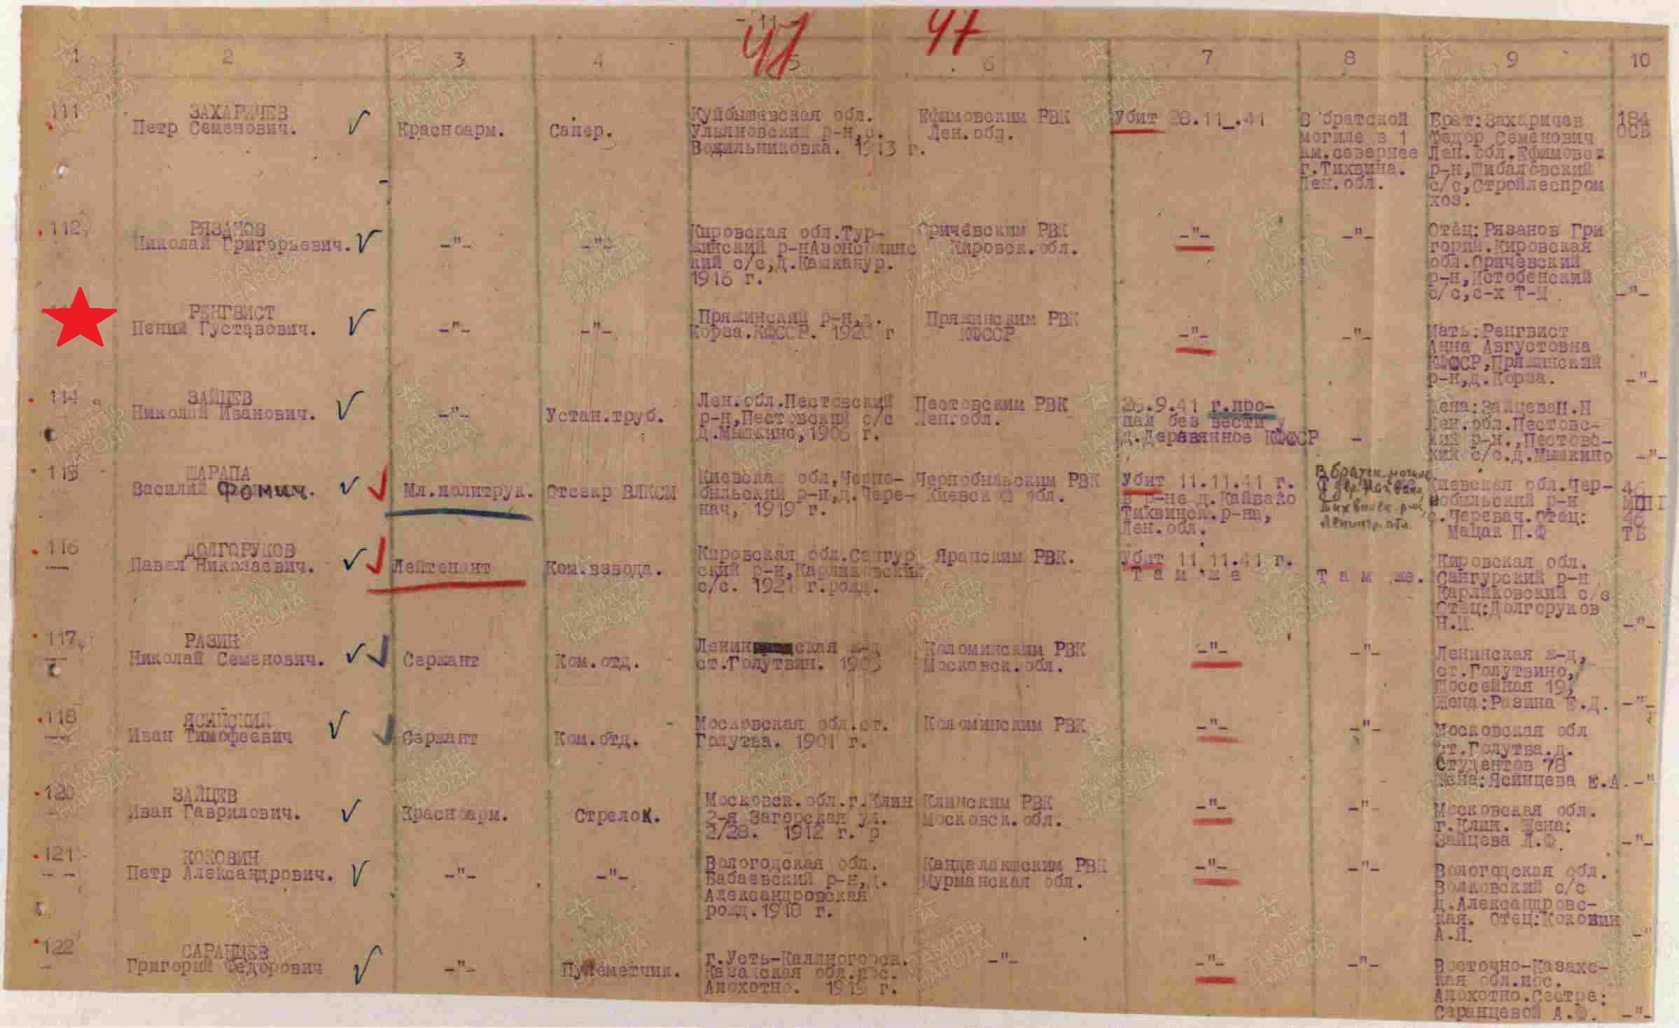 - 11 -
47 47
1 2 3 4 5 6 7 8 9 10
111
ЗАХАРИЧЕВ
Петр Семенович.
Красноарм.
Сапер.
Куйбышевская обл.
Ульяновский р-н, с.
1913 г.
Ефимовским РВК
Лен.обл.
Убит 28.11_.41
В братской
могиле в 1
км.севернее
г.Тихвина.
Лен.обл.
Брат:Захаричев
Федор Семенович
Лен.обл.Ефимовск
р-н,Шибаловский
с/с,Стройлеспром
хоз.
184
ОСБ
112
РЯЗАНОВ
Николай Григорьевич.
-"-
-"-
Кировская обл.Тур-
кий с/с,д.Кашканур.
1916 г.
Оричевским РВК
Кировск.обл.
-"-
-"-
Отец:Рязанов Гри
горий.Кировская
обл.Оричевский
р-н,Истобенский
с/с,с-х Т-И
-"-
РЕНГВИСТ
Пений Густавович.
-"-
-"-
Пряжинский р-н,д.
Корза.КФССР. 1920 г
Пряжинским РВК
КФССР
-"-
-"-
Мать:Ренгвист
Анна Августовна
КФССР,Пряжинский
р-н,д.Корза.
-"-
114
ЗАЙЦЕВ
Николай Иванович.
-"-
Устан.труб.
Лен.обл.Пестовский
р-н,Пестовский с/с
д.Мышкино,1906 г.
Пестовским РВК
Лен.обл.
26.9.41 г.про-
пал без вести
д.Деревянное КФССР
-
Жена:ЗайцеваН.Н
Лен.обл.Пестовс-
кий р-н.,Пестовс-
кий с/с.д.Мышкино
-"-
115
ШАРАПА
Василий Фомич.
Мл.политрук.
Отсекр ВЛКСМ
Киевская обл,Черно-
быльский р-н,д.Чере-
нач, 1919 г.
Чернобыльским РВК
Киевской обл.
Убит 11.11.41 г.
в р-не д.Кайвако
Тихвинск.р-на,
Лен.обл.
В братск.могиле
Тихвинск.р-н,
Киевская обл.Чер-
нобыльский р-н
с.Черевач.отец:
Мацак П.Ф
46
ТБ
116
ДОЛГОРУКОВ
Павел Николаевич.
Лейтенант
Ком.взвода.
Кировская обл.Сангур
ский р-н,Карликовский
с/с. 1921 г.рожд.
Яранским РВК.
Убит 11.11.41 г.
Т а м ж е
Т а м же.
Кировская обл.
Сангурский р-н
Карликовский с/с
Отец:Долгоруков
Н.И.
-"-
117
РАЗИН
Николай Семенович.
Сержант
Ком.отд.
Ленинская ж-д
ст.Голутвин.
Коломинским РВК
Московск.обл.
-"-
-"-
Ленинская ж-д,
ст.Голутвино,
Шоссейная 19,
Жена:Разина Е.Д.
-"-
118
ЯСИНСКИЙ
Иван Тимофеевич
Сержант
Ком.отд.
Московская обл.ст.
Голутва. 1901 г.
Коломинским РВК
-"-
-"-
Московская обл
ст.Голутва.д.
Студентов 78
Жена:Яснцева Е.А.
-"
120
ЗАЙЦЕВ
Иван Гаврилович.
Красноарм.
Стрелок.
Московск.обл.г.Клин
2-я Загорская ул.
2/28. 1912 г. р
Клинским РВК
Московск.обл.
-"-
-"-
Московская обл.
г.Клин. Жена:
Зайцева Л.Ф.
-"-
121
КОКОВИН
Петр Александрович.
-"-
-"-
Вологодская обл.
Бабаевский р-н,д.
Александровская
рожд.1910 г.
Кандалакшским РВК
Мурманская обл.
-"-
-"-
Вологодская обл.
Волковский с/с
д.Александровс-
кая. Отец:Коковин
А.Я.
-"
122
САРАНЦЕВ
Григорий Федорович
-"-
Пулеметчик.
г.Усть-Калиногорск.
Казахская обл.пос.
Алохотно. 1919 г.
-"-
-"-
-"-
Восточно-Казахс-
кая обл.пос.
Алохотно.Сестра:
Саранцевой А.Ф.
-"-